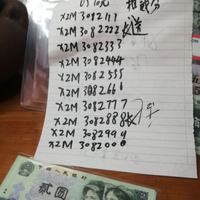 X2M 3082111
X2M 3082222
X2M 3082333
X2M 3082444
X2M 3082555
X2M 3082666
X2M 3082777
X2M 3082888
X2M 3082999
X2M 3082000
中国人民银行
贰圆